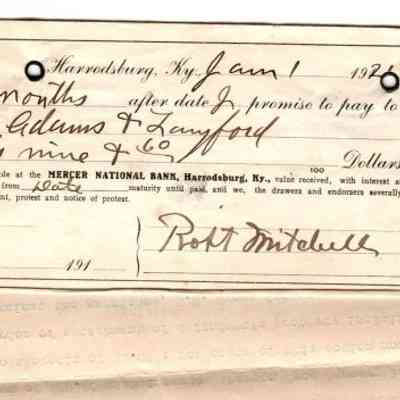 Harrodsburg, Ky., Jan 1 1920
months after date I promise to pay to
Adams & Langford
nine & 60 Dollars
100
ble at the MERCER NATIONAL BANK, Harrodsburg, Ky., value received, with interest a
from Date maturity until paid, and we, the drawers and endorsers severally
nt, protest and notice of protest.
Robt Mitchell
191